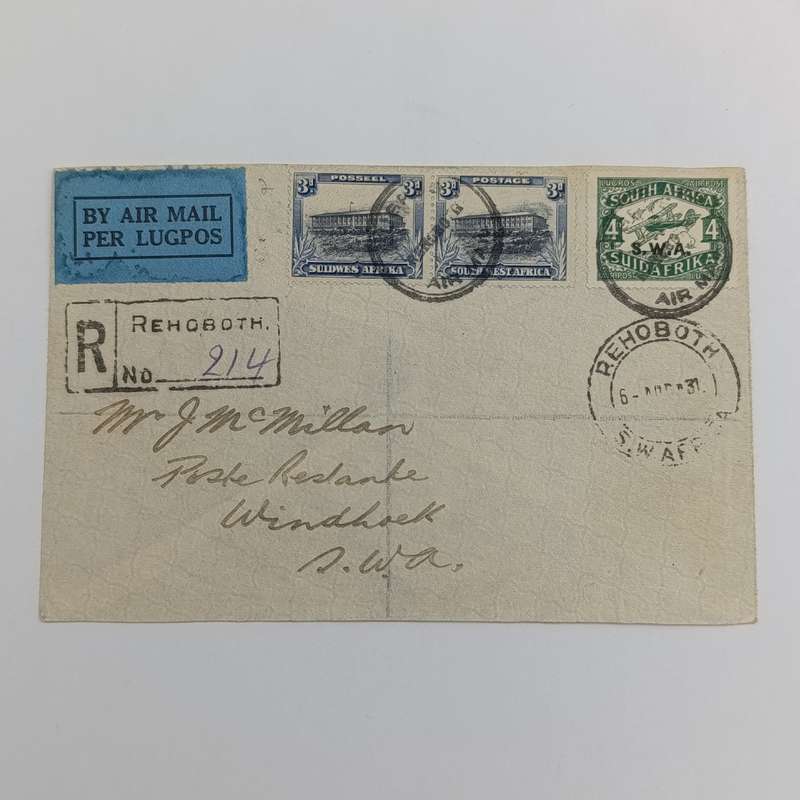 BY AIR MAIL
PER LUGPOS
POSSEEL
3d 3d
SUIDWES AFRIKA
POSTAGE
3d 3d
SOUTH WEST AFRICA
LUGPOS AIRPOST
SOUTH AFRICA
4 4
S.W.A.
SUIDAFRIKA
AIR
AIR
R
REHOBOTH.
No 214
REHOBOTH
6- 31
S.W. AFRICA
Mr J McMillan
Poste Restante
Windhoek
S.W.A.